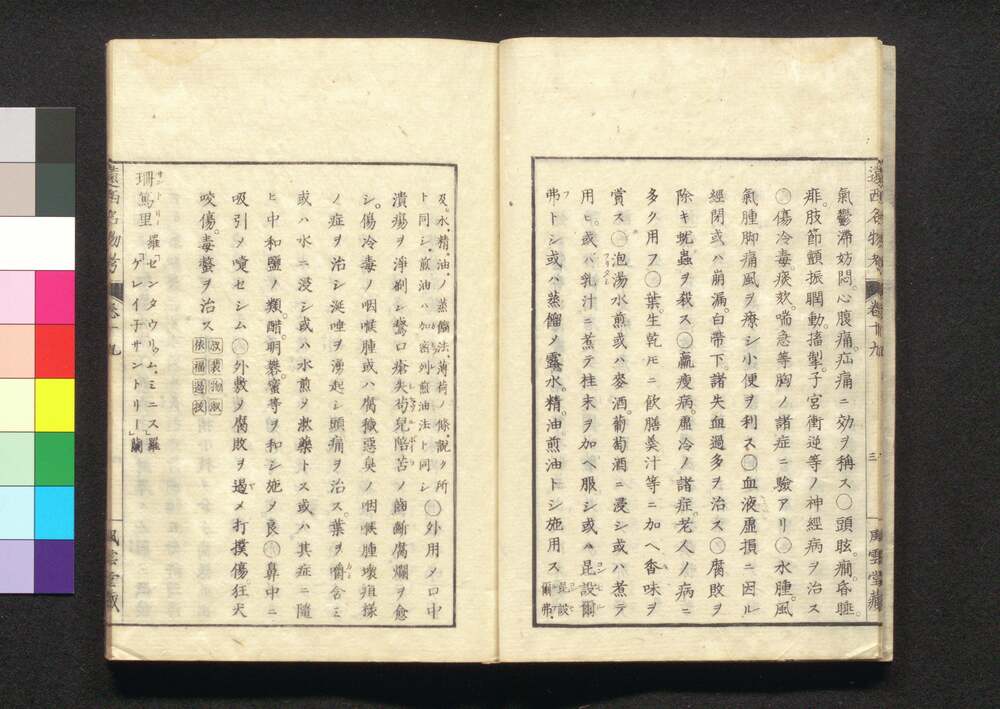 遠西名物考 卷十九 三 風雲堂藏
氣鬱滯妨悶。心腹痛。疝痛ニ効ヲ稱ス〇頭眩。癇。昏睡。
痱。肢節顫振瞤動。搐掣。子宮衝逆等ノ神經病ヲ治ス
〇傷冷毒。痰欬。喘急等胸ノ諸症ニ驗アリ〇水腫。風
氣腫脚痛風ヲ療シ小便ヲ利ス〇血液虛損ニ因ル
經閉或ハ崩漏。白帶下。諸失血過多ヲ治ス〇腐敗ヲ
除キ蚘蟲ヲ殺ス〇羸瘦病。虛冷ノ諸症。老人ノ病ニ
多ク用フ〇葉。生乾𪜈ニ飲膳羹汁等ニ加ヘ香味ヲ
賞ス〇泡湯水煎或ハ麥酒。葡萄酒ニ浸シ或ハ煮テ
用ヒ。或ハ乳汁ニ煮テ桂末ヲ加ヘ服シ或ハ昆設爾
弗トシ或ハ蒸餾メ露水。精。油煎油トシ施用ス 昆設爾弗。
及水。精。油。ノ蒸餾法。薄荷ノ條。說ク所
ト同シ。煎油ハ加密列煎油法ト同シ 〇外用メ口中
潰瘍ヲ淨刷シ鵞口瘡失苟兒陪苦ノ齒齗腐爛ヲ愈
シ。傷冷毒ノ咽喉腫或ハ腐穢惡臭ノ咽喉腫壞疽樣
ノ症ヲ治シ涎唾ヲ湧起シ頭痛ヲ治ス。葉ヲ嚼含シ
或ハ水ニ浸シ或ハ水煎ヲ漱藥トス或ハ其症ニ隨
ヒ中和鹽ノ類。醋。明礬。蜜等ヲ和シ施メ良〇鼻中ニ
吸引メ嚔セシム〇外敷ヲ腐敗ヲ遏メ打撲傷狂犬
咬傷。毒螫ヲ治ス
珊篤里 羅「センタウリム、ミニス」羅
「ゲレイ子サントリー」蘭
遠西名物考 卷十九 風雲堂藏